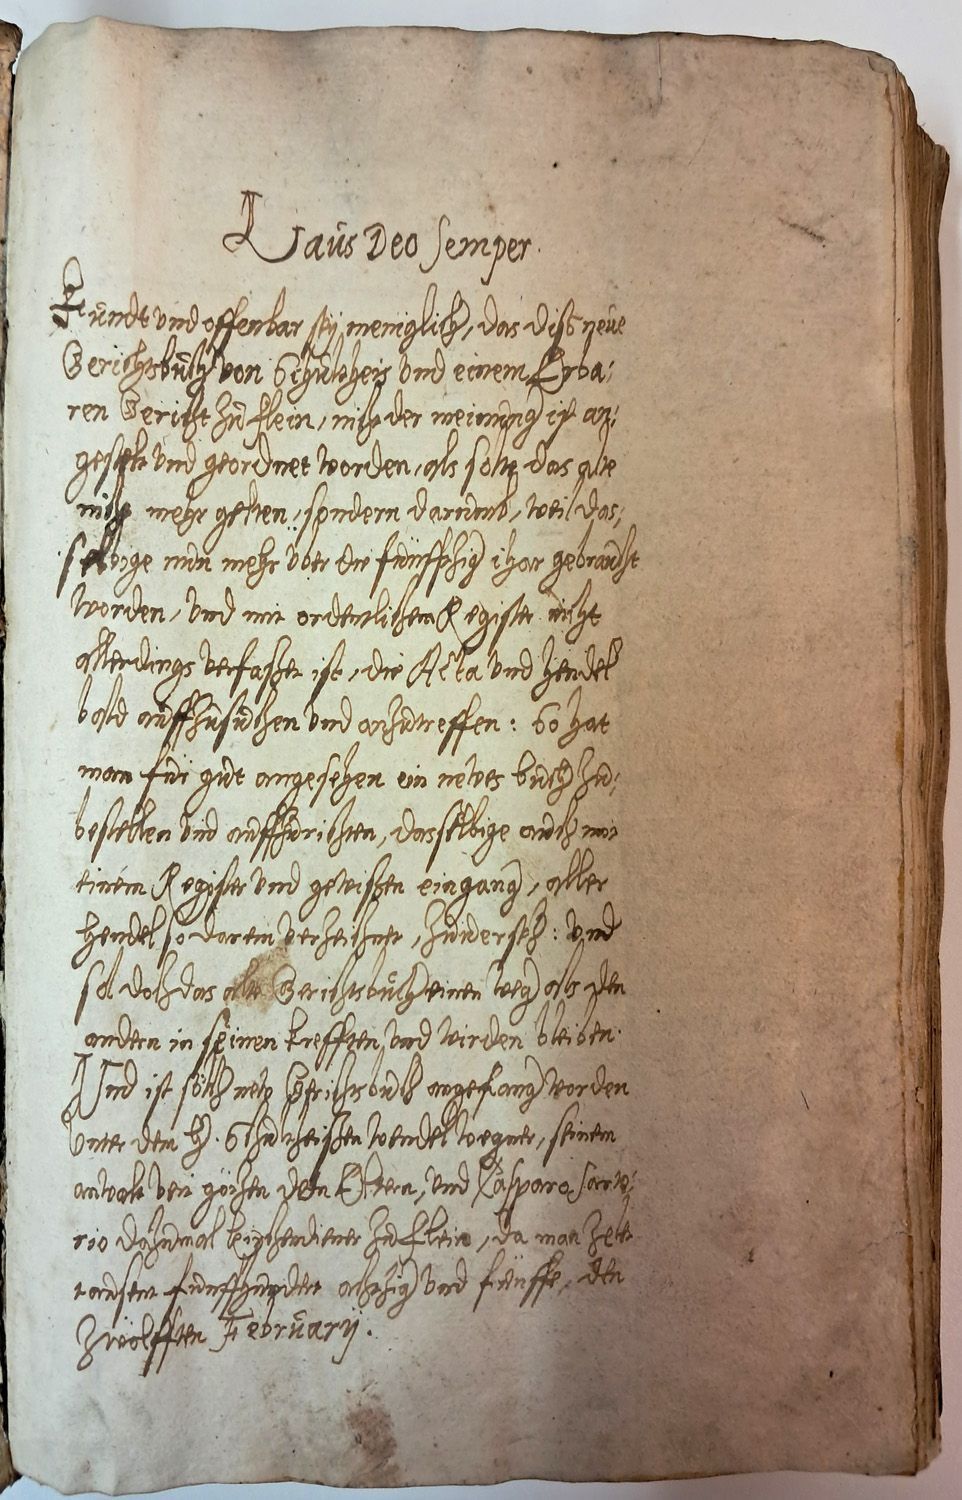 Laus Deo semper.
Kundt und offenbar sey meniglich, das diß neue
Gerichtsbuch von Schultheis und einem Erba:
ren Gericht zu Flein, nicht der meinung ist an:
gestelt und geordnet worden, als solte das alte
nicht mehr gelten, sondern darumb, weil das:
selbige nun mehr uber die funffzig ihar gebraucht
worden, und mit ordentlichem Register nicht
allerdings verfasset ist, die Acta und hendel
bald auffzusuchen und anzutreffen: So hat
man fur gut angesehen ein newes buch zu:
bestellen und auffzurichten, dasselbige auch mit
einem Register und gewissen eingang, aller
hendel so darein verzeichnet, : und
sol doch das alte Gerichtsbuch einen weg als den
andern in seinen krefften und wirden bleiben.
Und ist solch new Gerichtsbuch angefang worden
unter dem H. Schultheissen Wendel Wegner, seinem
anwalt dem Eltern, und Casparo Sarto:
rio dazumal kirchendiener zu Flein, da man zelt
tausent funffhundert achzig und fünffe, den
zwölfften Februarij.